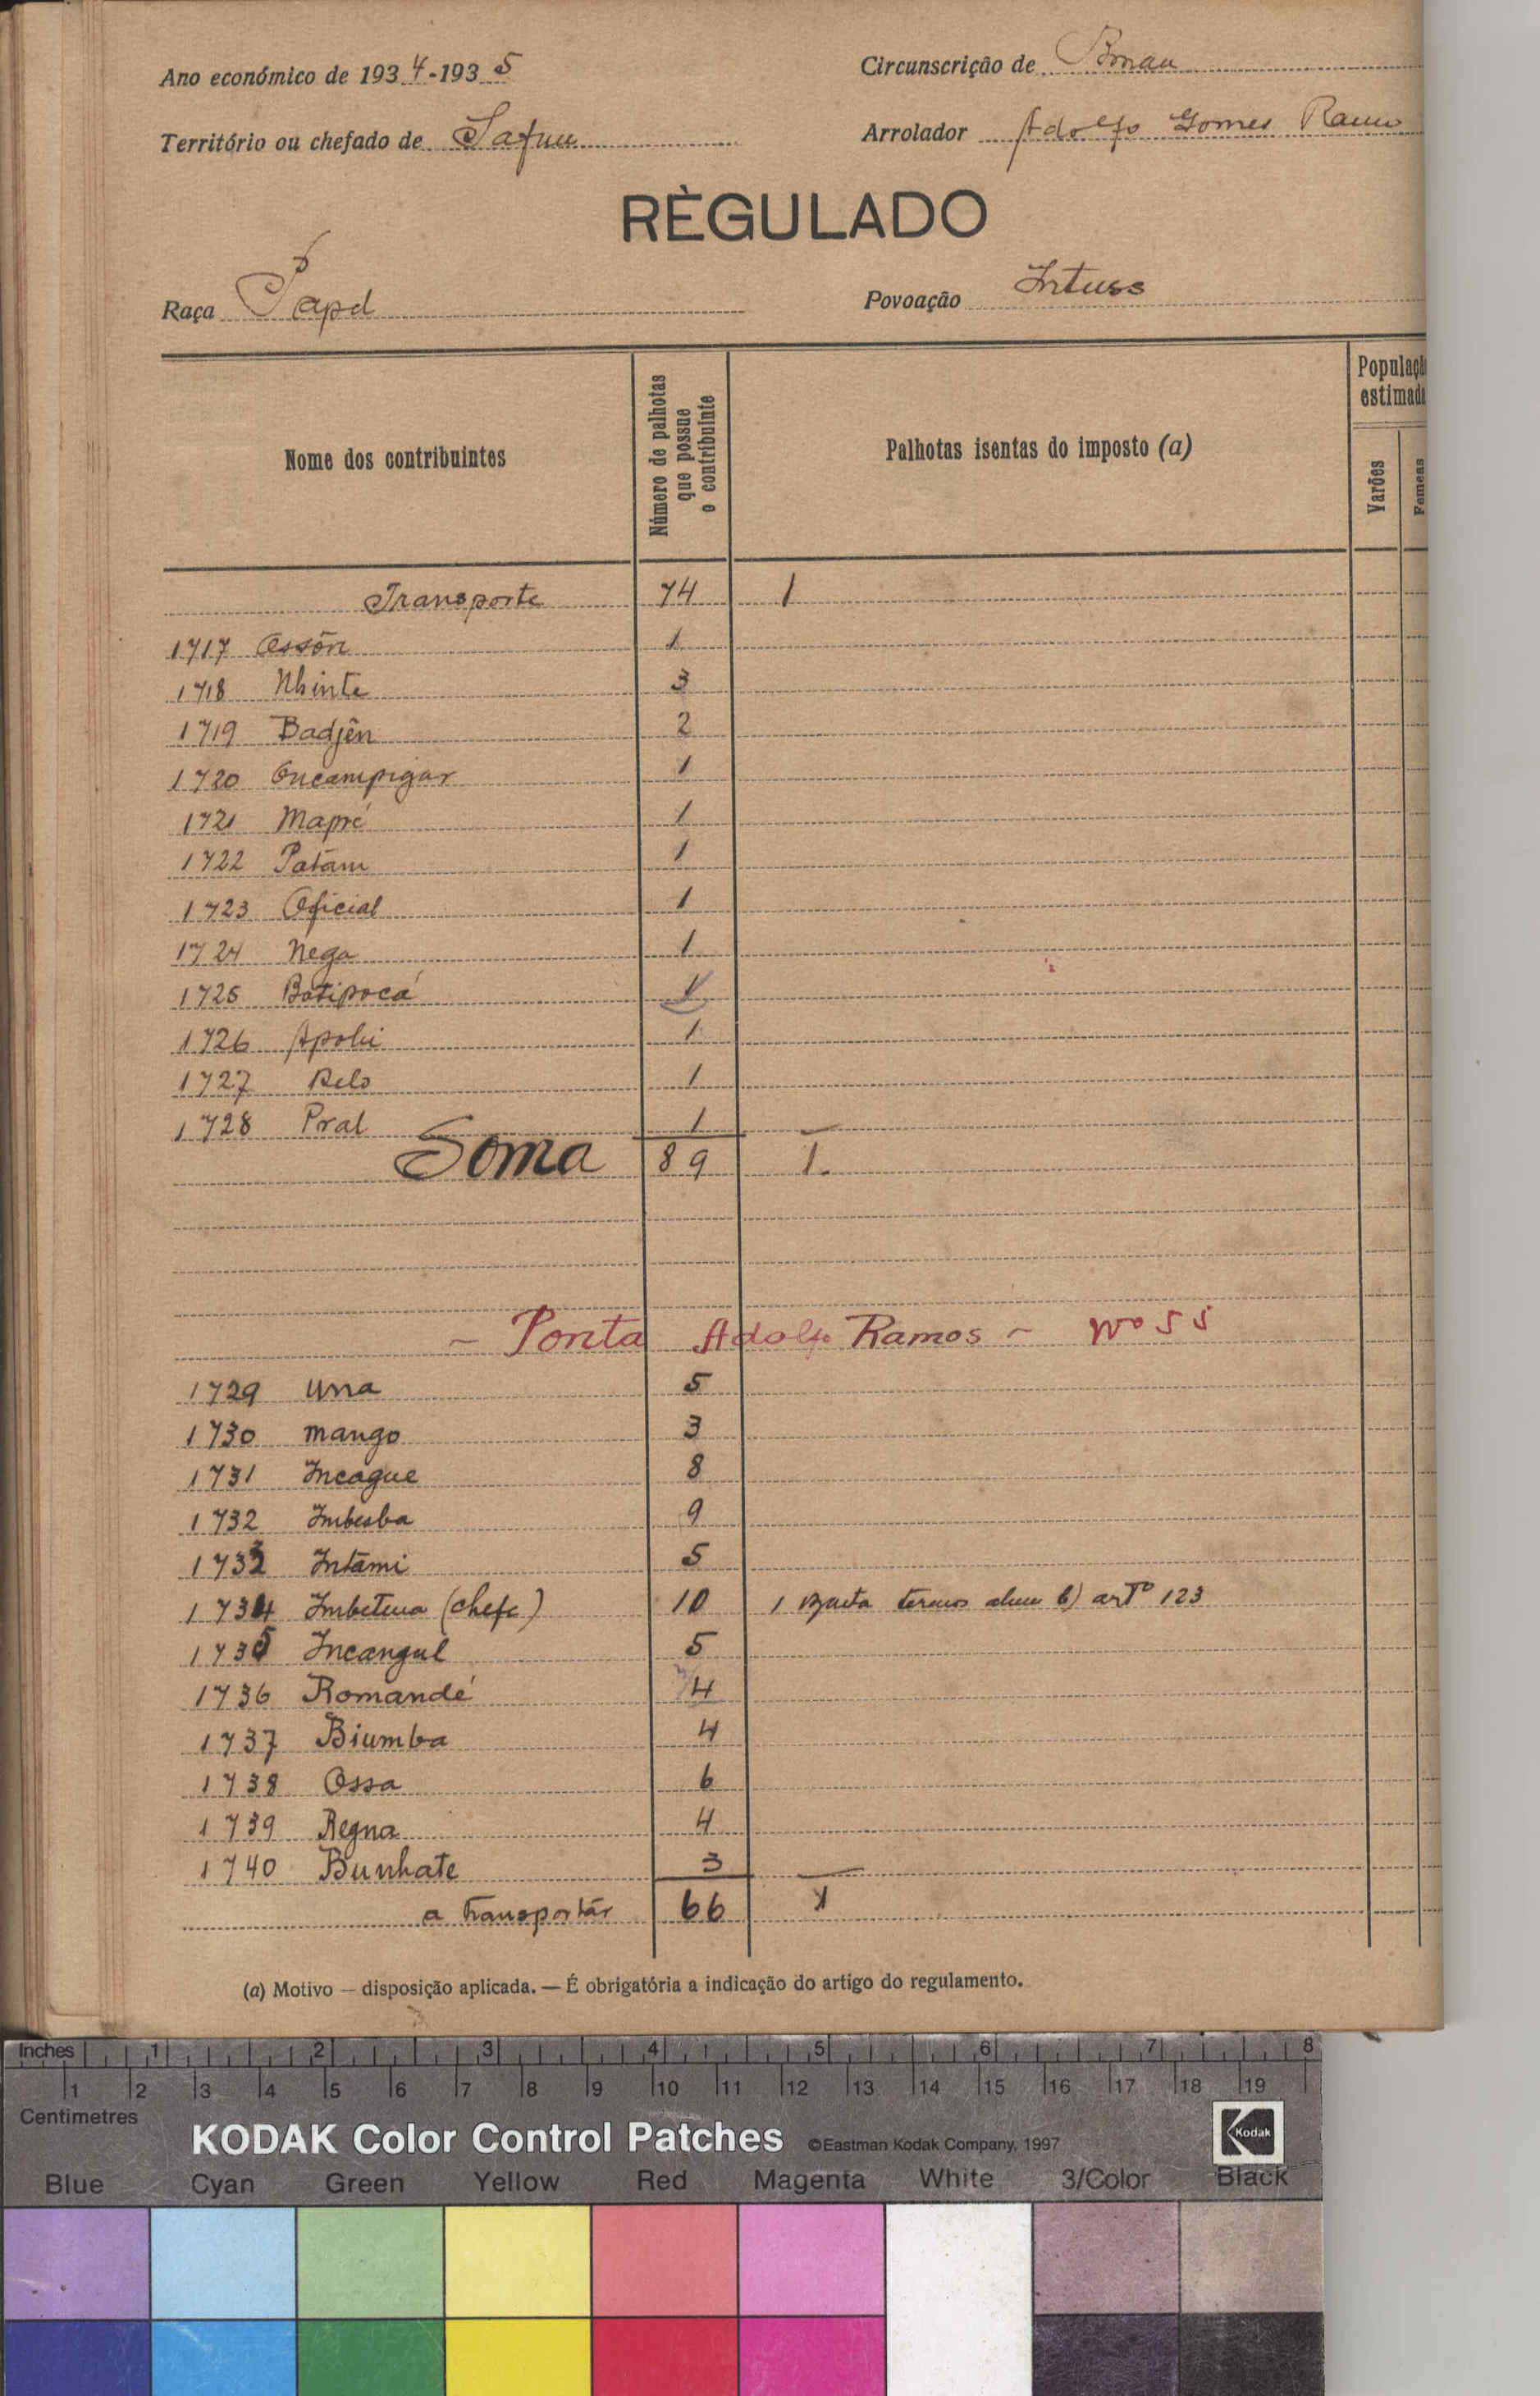 Ano económico de 1934-1935 Circunscrição de
Território ou chefado de Safim Arrolador Adolfo Gomes Ramos
RÈGULADO
Raça Papel Povoação Intuss
Nome dos contribuintes Número de palhotas que possue o contribuinte Palhotas isentas do imposto (a) Populaçã estimada Varões Femeas
Transporte 74 1
1717 Ossôn 1
1718 Nhinte 3
1719 Badjên 2
1720 Oncampigar 1
1721 Mapré 1
1722 Patam 1
1723 Oficial 1
1724 Nega 1
1725 Batipocá 1
1726 1
1727 Relo 1
1728 Pral 1
Soma 89 1.
- Ponta Adolfo Ramos - Nº 55
1729 Una 5
1730 Mango 3
1731 Incague 8
1732 Imbesba 9
1733 Intami 5
1734 (chefe) 10 1 termos b) artº 123
1735 Incangul 5
1736 Romandé 4
1737 Biumba 4
1738 Ossa 6
1739 Regna 4
1740 Bunhate 3
a transportár 66 1
(a) Motivo — disposição aplicada. — É obrigatória a indicação do artigo do regulamento.
Inches 1 2 3 4 5 6 7 8
1 2 3 4 5 6 7 8 9 10 11 12 13 14 15 16 17 18 19
Centimetres
KODAK Color Control Patches ©Eastman Kodak Company, 1997 Kodak
Blue Cyan Green Yellow Red Magenta White 3/Color Black